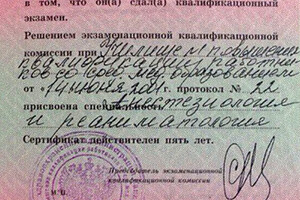 в том, что он(а) сдал(а) квалификационный
экзамен.
Решением экзаменационной квалификационной
комиссии при Училище повышения
квалификации работни-
ков со сред. мед. образованием
от «14» июня 2001г. протокол № 22
присвоена специальность
Анестезиология
и реаниматология
Сертификат действителен пять лет.
Председатель экзаменационной
квалификационной комиссии
М.П.